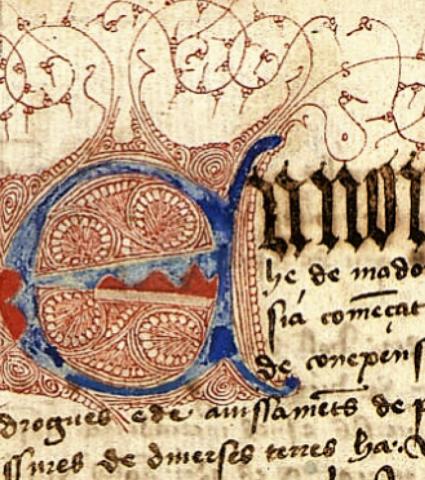 En nom
he de mado
sia comēçat
de conexens
drogues e de auissamēts de p
ssures de diuerses terres ha.